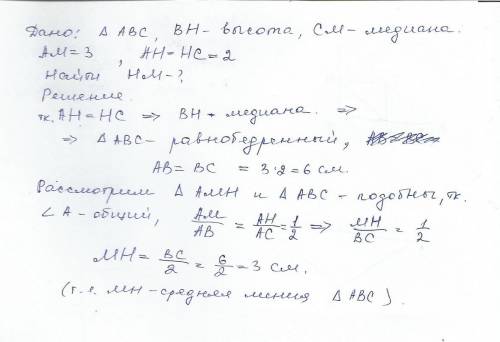 Дано: Δ ABC, BH - высота, CM - медиана.
AM = 3 , AH = HC = 2
Найти HM - ?
Решение.
т.к. AH = HC ⇒ BH - медиана. ⇒
⇒ Δ ABC - равнобедренный,
AB = BC = 3·2 = 6 см.
Рассмотрим Δ AMH и Δ ABC - подобны, т.к.
∠ A - общий, AM/AB = AH/AC = 1/2 ⇒ MH/BC = 1/2
MH = BC/2 = 6/2 = 3 см.
(т.е. MH - средняя линия Δ ABC).